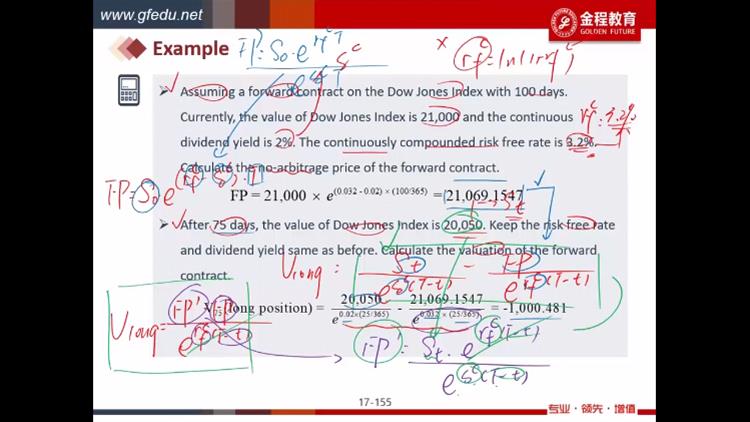 www.gfedu.net
金程教育
GOLDEN FUTURE
Example
FP = S₀·e^{rf^c T}
e^{δ^c T}
× rf^c = ln(1+rf)
Assuming a forward contract on the Dow Jones Index with 100 days.
Currently, the value of Dow Jones Index is 21,000 and the continuous
dividend yield is 2%. The continuously compounded risk free rate is 3.2%.
rf^c = 3.2%
Calculate the no-arbitrage price of the forward contract.
FP = S₀·e^{(rf^c - δ^c)·T}
FP = 21,000 × e^{(0.032 - 0.02) × (100/365)} = 21,069.1547
After 75 days, the value of Dow Jones Index is 20,050. Keep the risk free rate
and dividend yield same as before. Calculate the valuation of the forward
contract.
V long = S_t / e^{δ^c(T-t)} - FP / e^{rf^c(T-t)}
(long position) = 20,050 / e^{0.02×(25/365)} - 21,069.1547 / e^{0.032 × (25/365)} = -1,000.481
V long = FP' - FP / e^{rf^c(T-t)}
FP' = S_t · e^{rf^c(T-t)} / e^{δ^c(T-t)}
17-155
专业·领先·增值